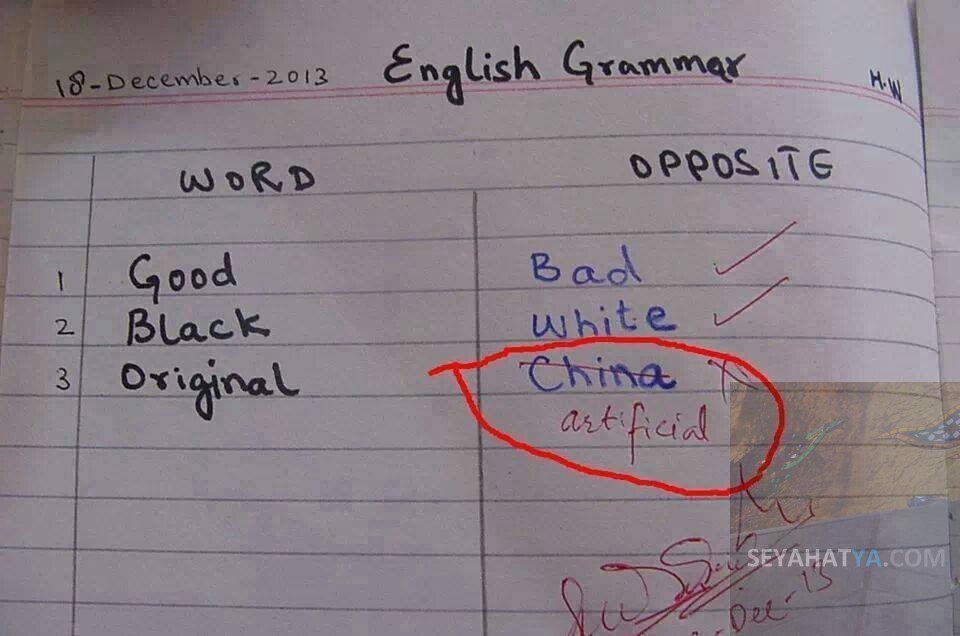 18-December-2013 English Grammar H.W
WORD OPPOSITE
1 Good Bad
2 Black White
3 Original China
artificial
SEYAHATYA.COM
Dec-13